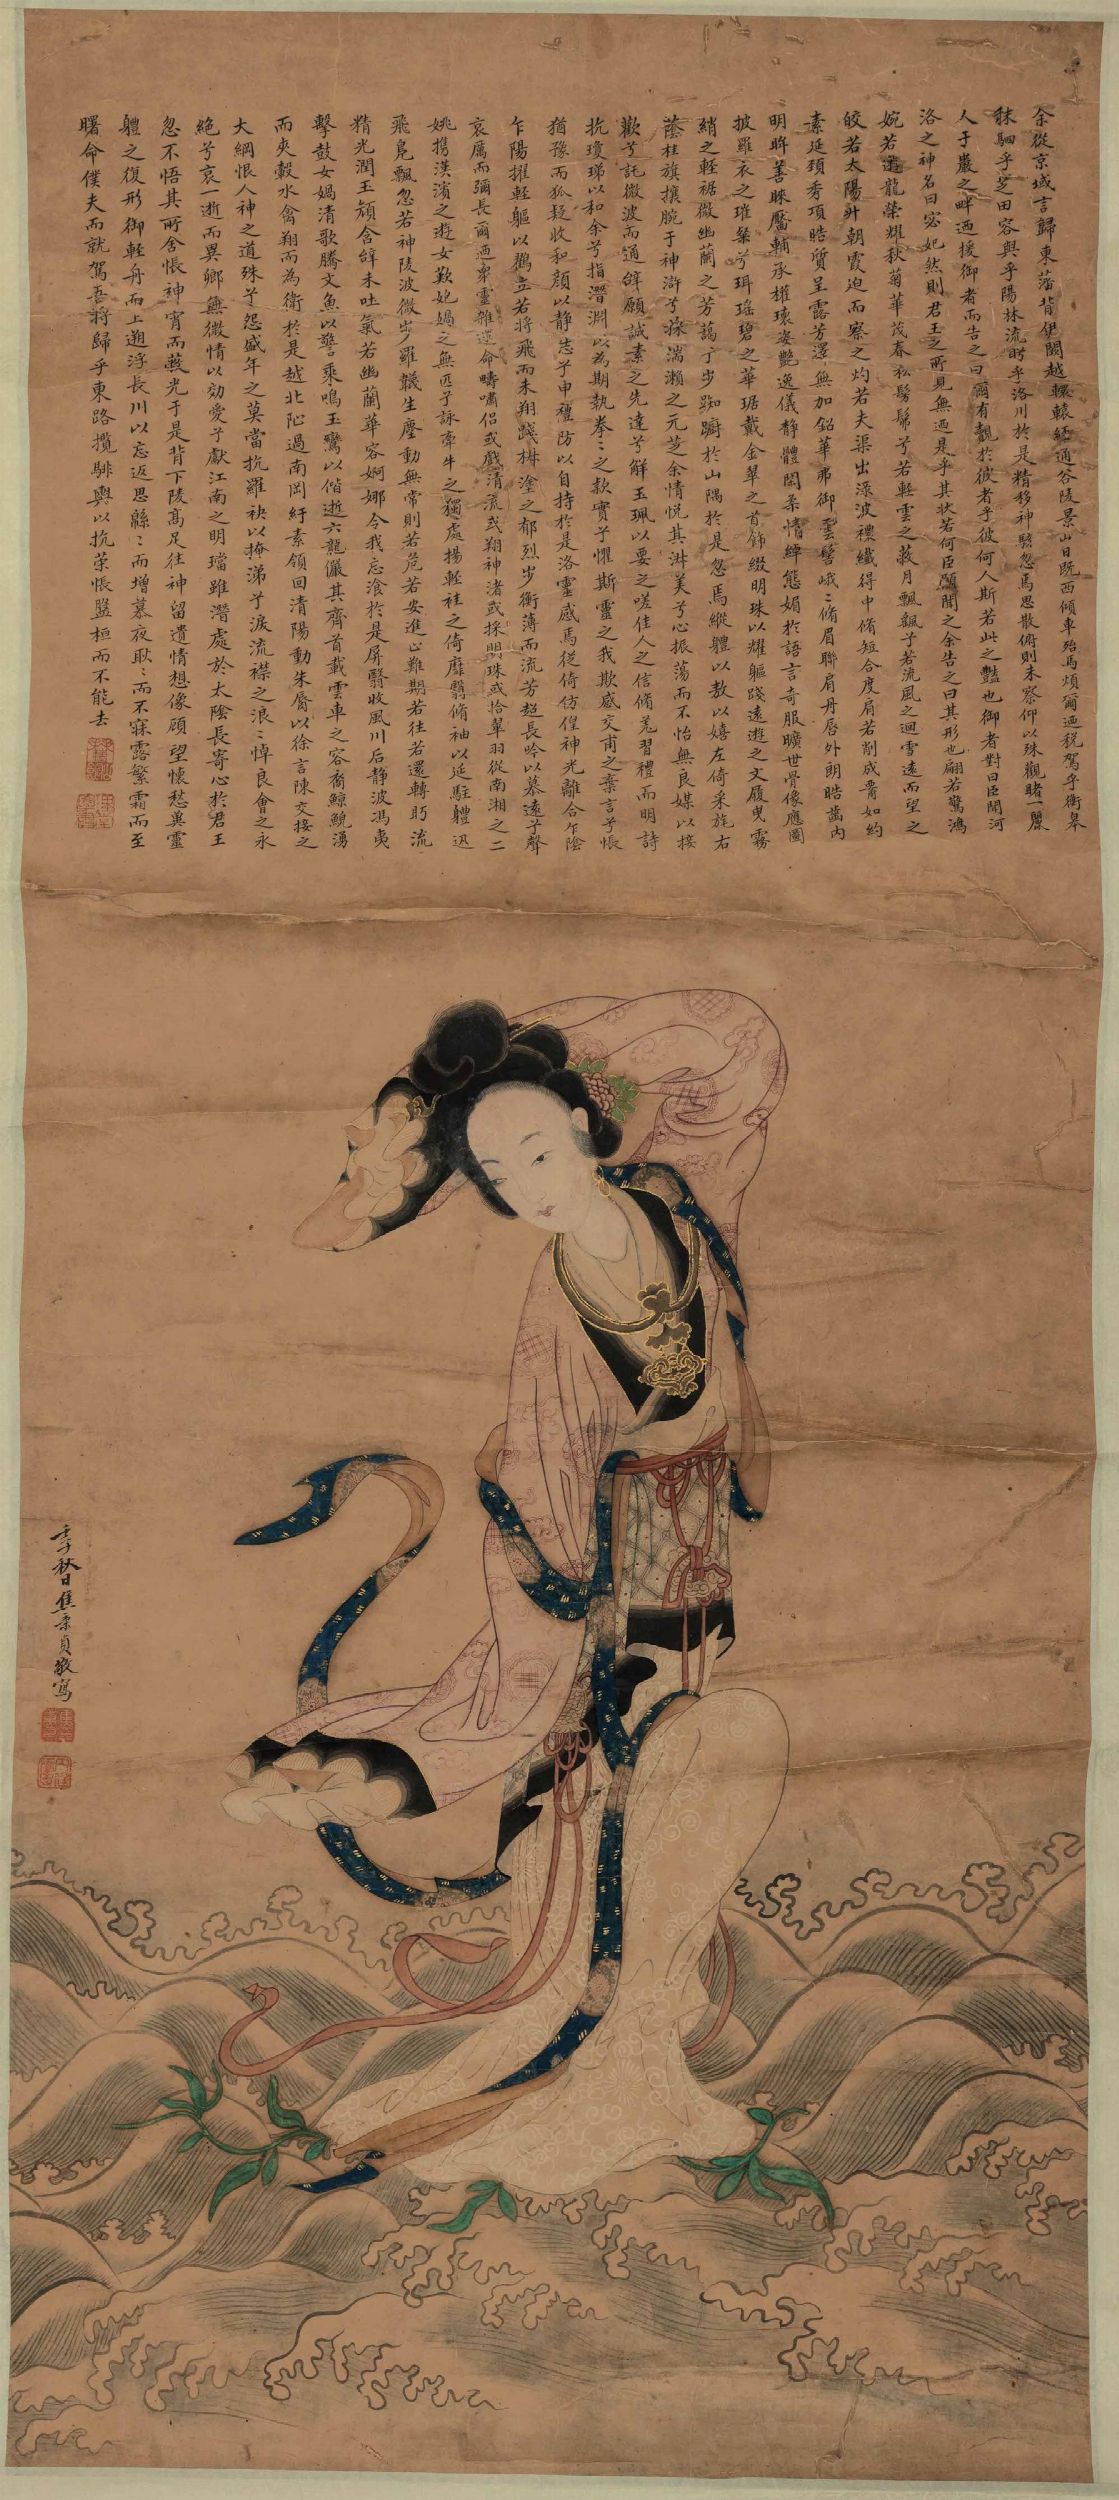 余從京域言歸東藩背伊闕越轘轅經通谷陵景山日既西傾車殆馬煩爾迺税駕乎衡皋
秣駟乎芝田容與乎陽林流眄乎洛川於是精移神駭忽焉思散俯則未察仰以殊觀睹一麗
人于巖之畔迺援御者而告之曰爾有覿於彼者乎彼何人斯若此之豔也御者對曰臣聞河
洛之神名曰宓妃然則君王之所見無迺是乎其状若何臣願聞之余告之曰其形也翩若驚鴻
婉若遊龍榮耀秋菊華茂春松髣髴兮若輕雲之蔽月飄飄兮若流風之迴雪遠而望之
皎若太陽升朝霞迫而察之灼若夫渠出渌波穠纖得中脩短合度肩若削成署如約
素延頸秀項皓質呈露芳澤無加鉛華弗御雲髻峨〻脩眉聯肩丹唇外朗皓齒內
明眸善睞靨輔承權瓌姿艷逸儀静體閑柔情綽態媚於語言奇服曠世骨像應圖
披羅衣之璀粲兮珥瑶碧之華琚戴金翠之首飾綴明珠以耀軀踐遠遊之文履曳霧
綃之輕裾微幽蘭之芳藹兮步踟蹰於山隅於是忽焉縱軆以敖以嬉左倚采旄右
蔭桂旗攘腕于神滸兮采湍瀨之元芝余情悦其淑美兮心振蕩而不怡無良媒以接
歡兮託微波而通辭願誠素之先達兮解玉珮以要之嗟佳人之信脩羌習禮而明詩
抗瓊珶以和余兮指潛淵以為期執拳〻之款實兮懼斯靈之我欺感交甫之棄言兮悵
猶豫而狐疑收和顔以静志兮申禮防以自持於是洛靈感焉徙倚仿偟神光離合乍陰
乍陽擢輕軀以鸖立若將飛而未翔踐椒塗之郁烈步衡薄而流芳超長吟以慕遠兮聲
哀厲而彌長爾迺衆靈雜遝命疇嘯侣或戲清流或翔神渚或採明珠或拾翠羽從南湘之二
姚攜漢濱之遊女歎匏媧之無匹兮詠牽牛之獨處揚輕袿之倚靡翳脩袖以延駐軆迅
飛鳧飄忽若神陵波微步羅韈生塵動無常則若危若安進止難期若往若還轉眄流
精光潤玉頏含辭未吐氣若幽蘭華容婀娜令我忘飡於是屏翳收風川后静波馮夷
擊鼓女媧清歌騰文魚以警乘鳴玉鸞以偕逝六龍儼其齊首載雲車之容裔鯨鯢湧
而夾轂水禽翔而為衛於是越北沚過南岡紆素領回清陽動朱脣以徐言陳交接之
大綱恨人神之道殊兮怨盛年之莫當抗羅袂以掩涕兮淚流襟之浪〻悼良會之永
絕兮哀一逝而異鄉無微情以効愛兮獻江南之明璫雖潛處於太陰長寄心於君王
忽不悟其所舍悵神宵而蔽光于是背下陵高足往神留遺情想像顧望懷愁兾靈
軆之復形御輕舟而上遡浮長川以忘返思緜〻而增慕夜耿〻而不寐霑繁霜而至
曙命僕夫而就駕吾將歸乎東路攬騑轡以抗策悵盤桓而不能去
季秋日焦秉貞敬寫